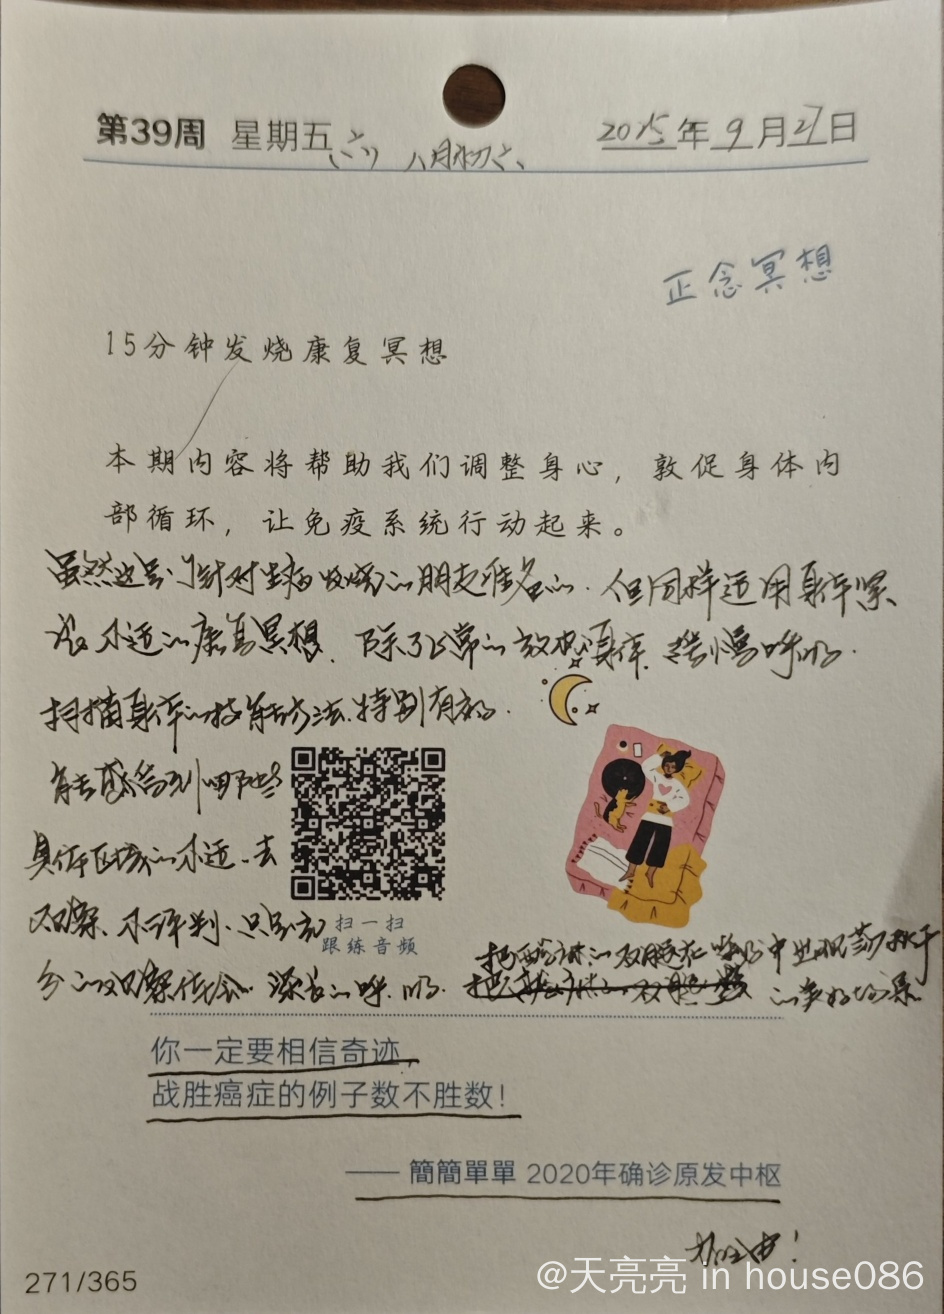 第39周 星期五(六) 八月初六、 2025年9月27日
正念冥想
15分钟发烧康复冥想
本期内容将帮助我们调整身心，敦促身体内
部循环，让免疫系统行动起来。
虽然这是个针对生病发烧的朋友准备的. 但同样适用身体紧
张不适的康复冥想. 除了正常的放松身体. 缓慢呼吸.
扫描身体的技能方法.特别有效.
能感觉到哪些
具体区域的不适.去
观察、不评判、只是充
分的观察体会. 深长的呼.吸.
扫一扫
跟练音频
把酸麻的双腿在呼吸中出现
的美好场景
你一定要相信奇迹，
战胜癌症的例子数不胜数！
—— 簡簡單單 2020年确诊原发中枢
271/365
@天亮亮 in house086